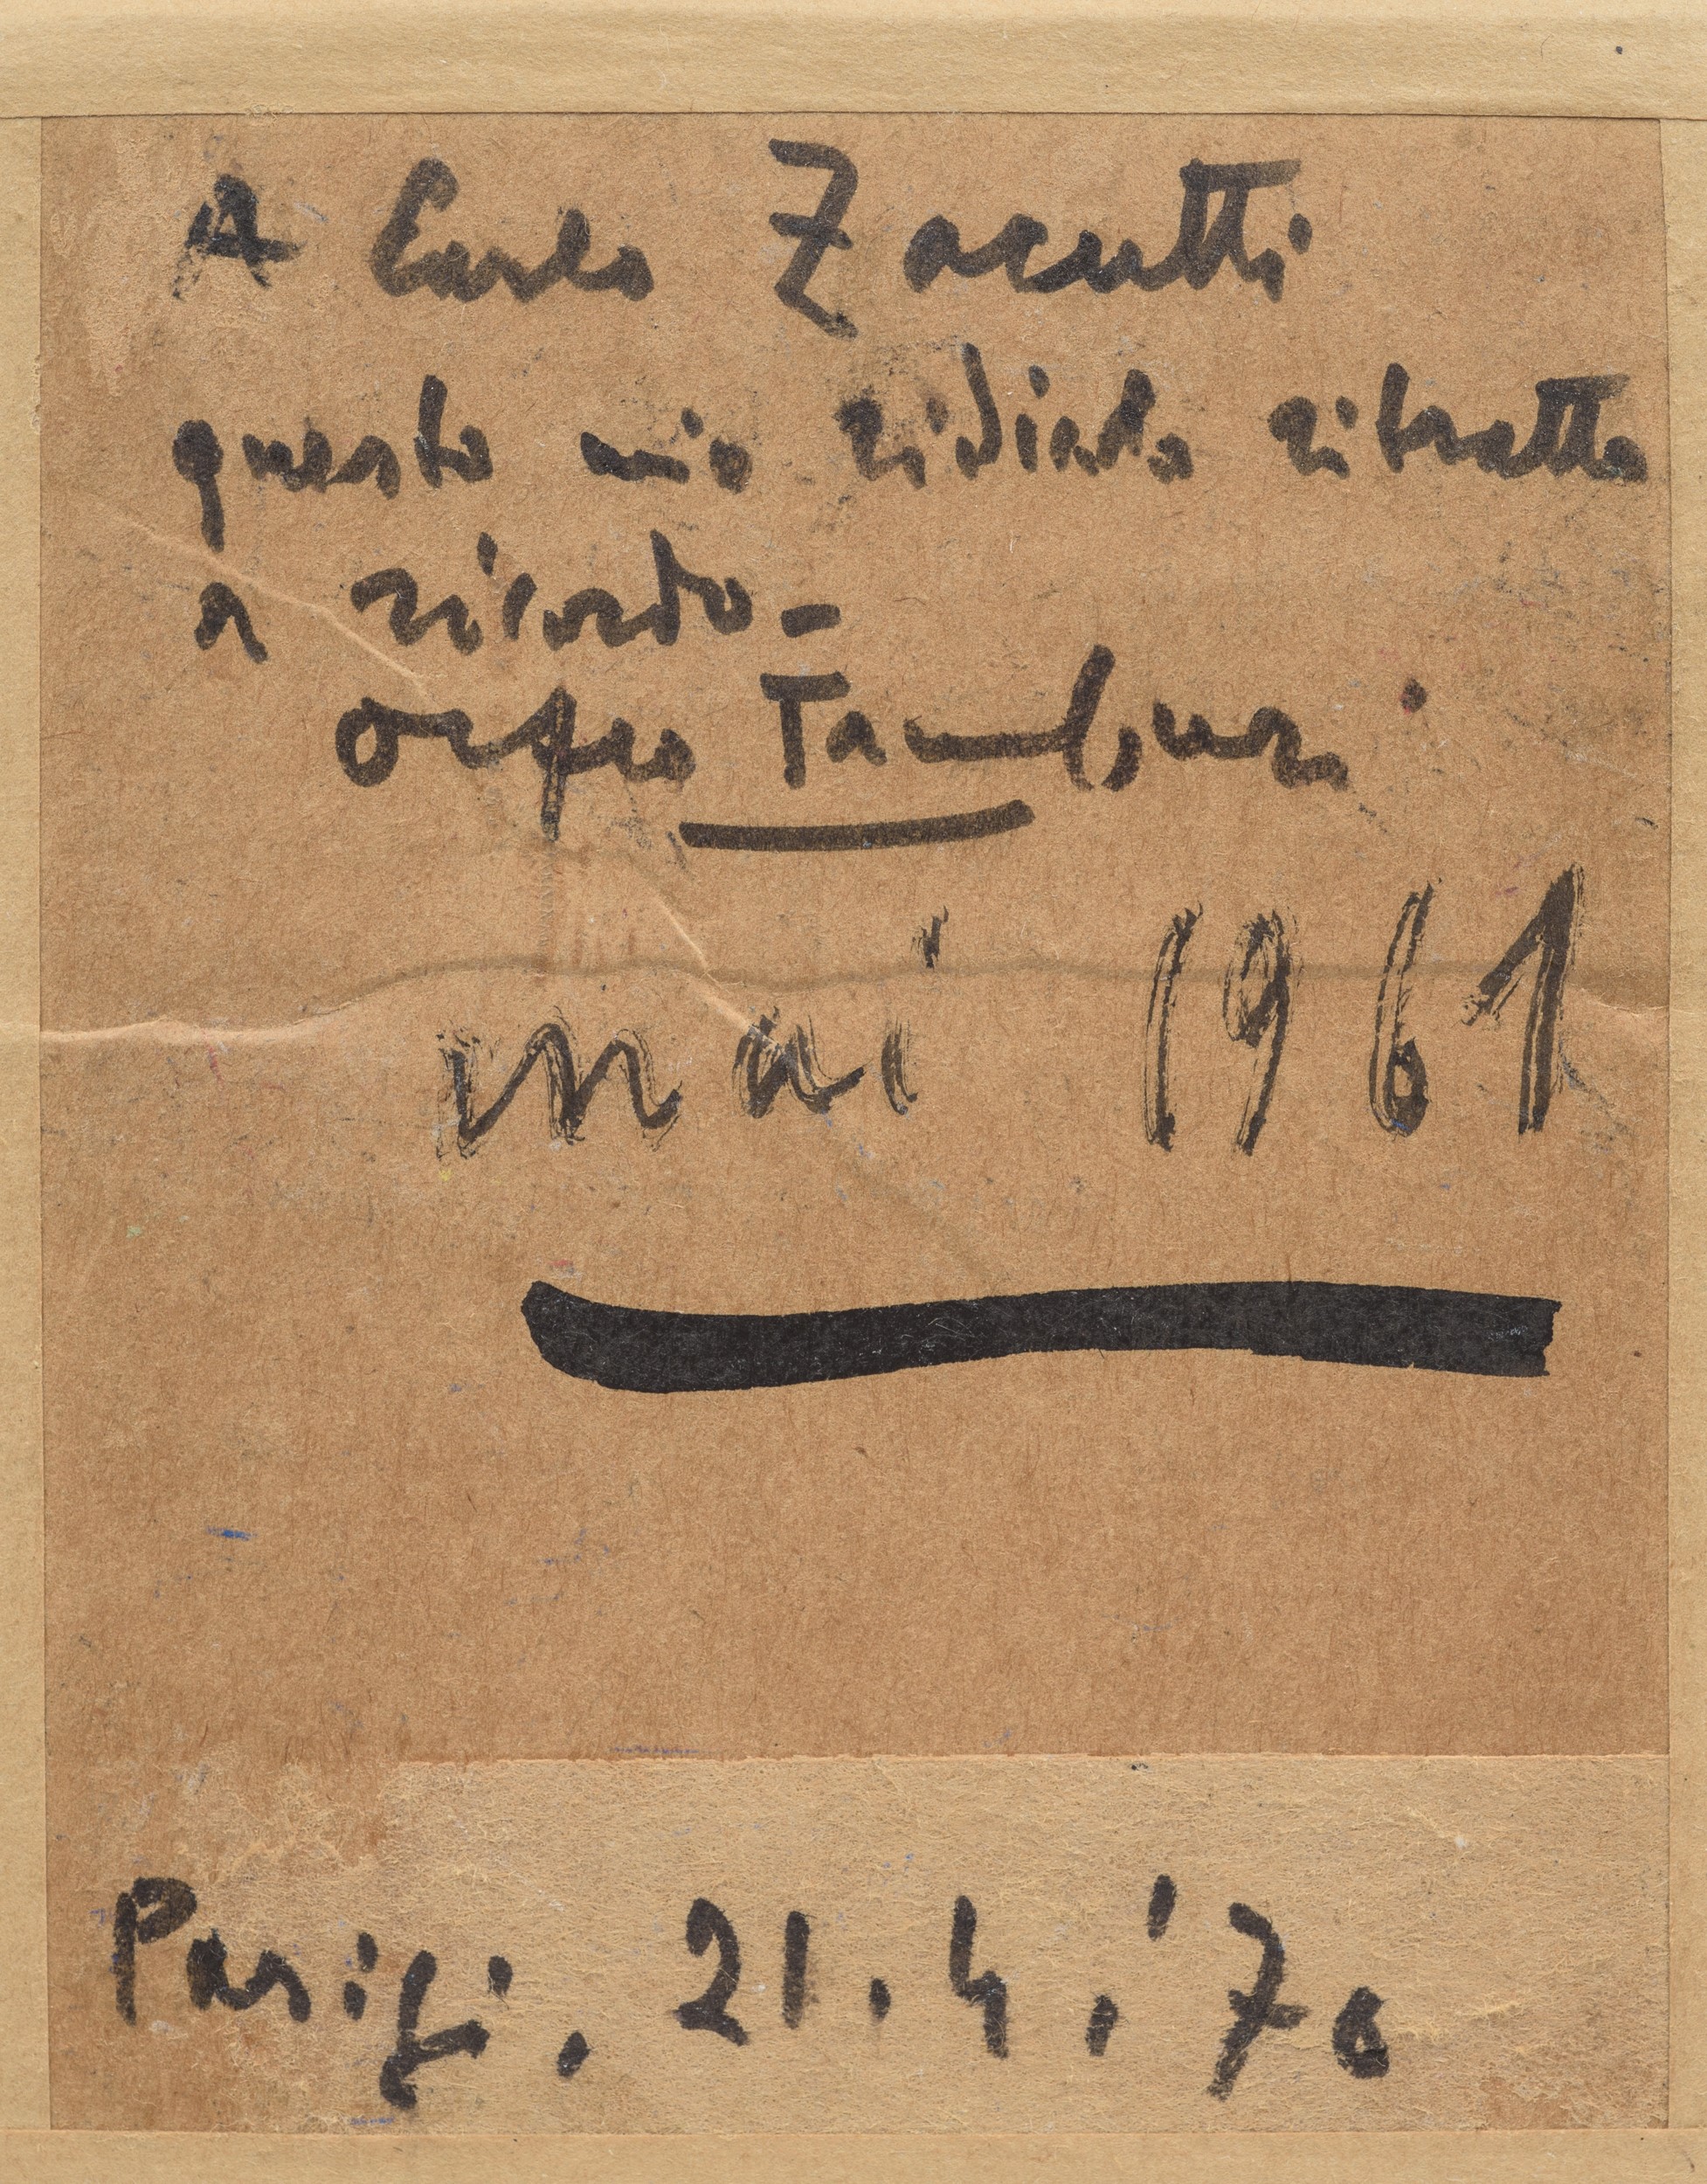 A Carlo Zacutti
questo mio ridicolo ritratto
a ricordo-
Orfeo Tamburi
mai 1961
Parigi, 21.4.'70